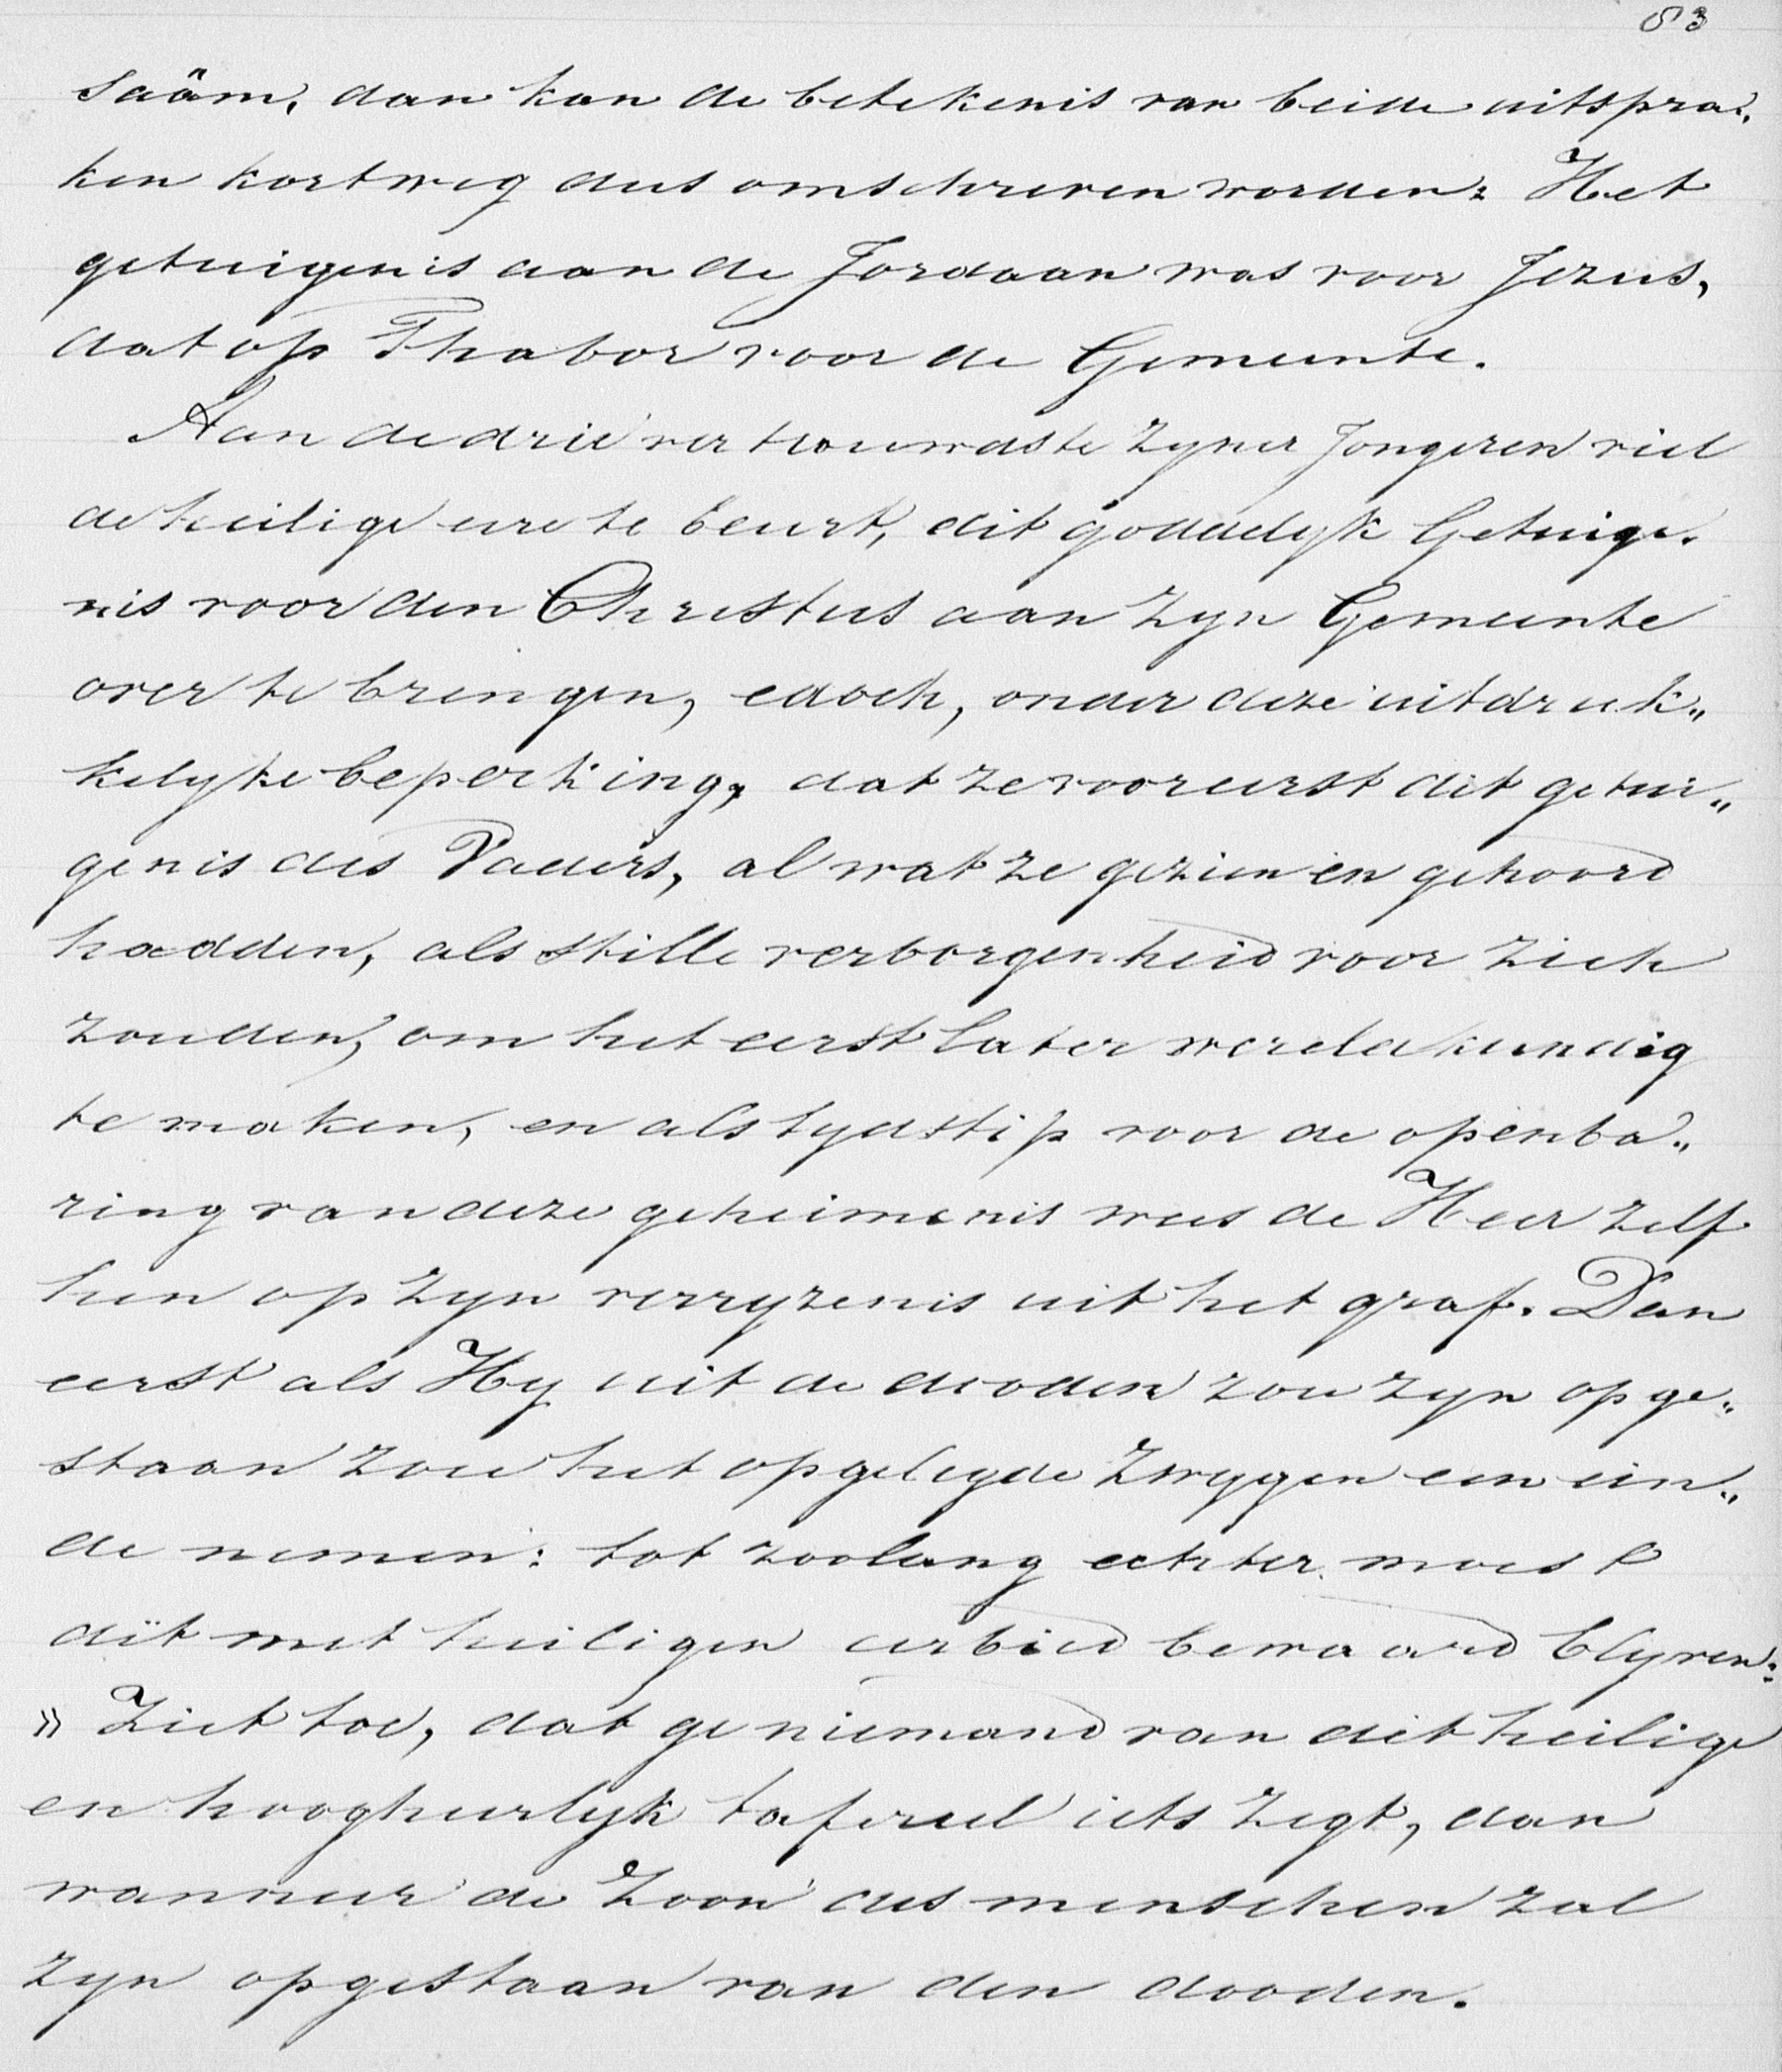 53
saäm, dan kan de betekenis van beide uitspra„
ken kortweg dus omschreven worden: Het
getuigenis aan de Jordaan was voor Jezus,
dat op Thabor voor de Gemeente.
Aan de drie vertrouwdste zyner Jongeren viel
de heilige eere te beurt, dit goddelyk Getuige„
nis voor den Christus aan zyn Gemeente
over te brengen, edoch, onder deze uitdruk„
kelyke beperking, dat ze vooreerst dit getui„
genis des Vaders, al wat ze gezien en gehoord
hadden, als stille verborgenheid voor zich
zouden, om het eerst later wereldkundig
te maken, en als tydstip voor de openba„
ring van deze geheimenis wees de Heer zelf
hun op zyn verryzenis uit het graf. Dan
eerst als Hy uit de dooden zou zyn opge„
staan zou het opgelegde zwygen een ein„
de nemen: tot zoolang echter moest
dit met heiligen eerbied bewaard blyven:
» Ziet toe, dat ge niemand van dit heilige
en hoogheerlyk tafereel iets zegt, dan
wanneer de Zoon des menschen zal
zyn opgestaan van den dooden.